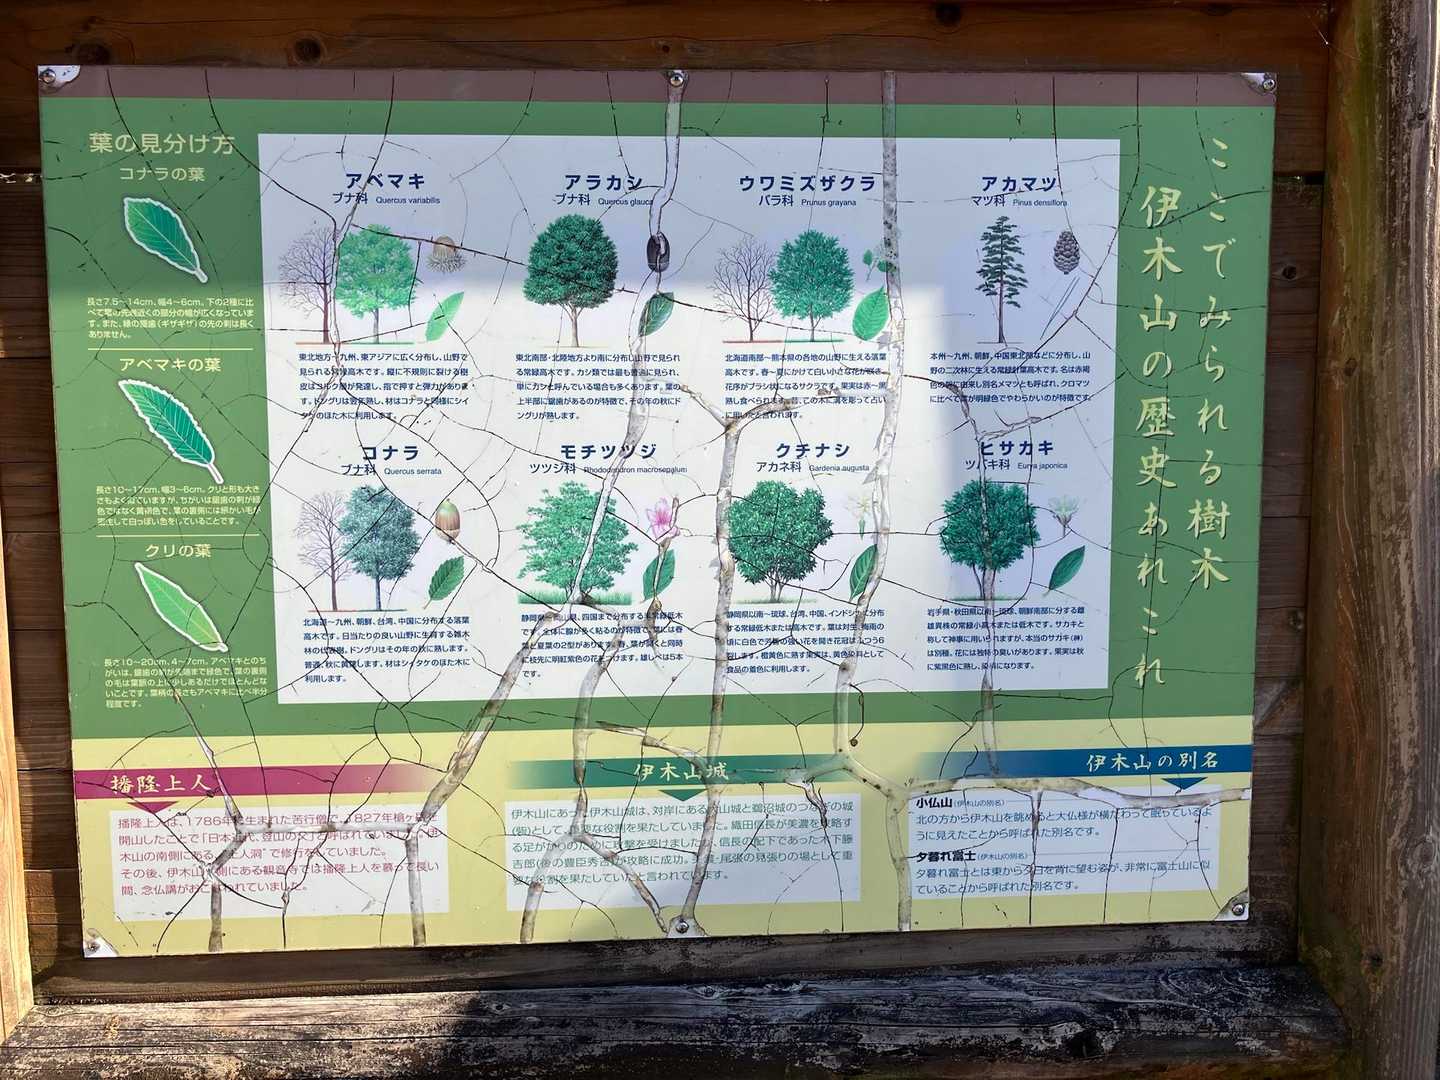 ここでみられる樹木
伊木山の歴史あれこれ
葉の見分け方
コナラの葉
長さ7.5〜14cm、幅4〜6cm。下の2種に比
べて葉の先端近くの部分の幅が広くなっていま
す。また、縁の鋸歯(ギザギザ)の先の刺は長く
ありません。
アベマキの葉
長さ10〜17cm、幅3〜6cm。クリと形も大き
さもよく似ていますが、ちがいは鋸歯の刺が緑
色ではなく黄褐色で、葉の裏側には細かい毛が
密生して白っぽい色をしていることです。
クリの葉
長さ10〜20cm、4〜7cm。アベマキとのち
がいは、鋸歯の刺が先端まで緑色で、葉の裏側
の毛は葉脈の上に少しあるだけでほとんどな
いことです。葉柄の長さもアベマキに比べ半分
程度です。
アベマキ
ブナ科 Quercus variabilis
東北地方〜九州、東アジアに広く分布し、山野で
見られる落葉高木です。縦に不規則に裂ける樹
皮はコルク層が発達し、指で押すと弾力がありま
す。ドングリは翌年熟し、材はコナラと同様にシイ
タケのほた木に利用します。
アラカシ
ブナ科 Quercus glauca
東北南部・北陸地方より南に分布し山野で見られ
る常緑高木です。カシ類では最も普通に見られ、
単にカシと呼んでいる場合も多くあります。葉の
上半部に鋸歯があるのが特徴で、その年の秋にド
ングリが熟します。
ウワミズザクラ
バラ科 Prunus grayana
北海道南部〜熊本県の各地の山野に生える落葉
高木です。春〜夏にかけて白い小さな花が咲き、
花序がブラシ状になるサクラです。果実は赤〜黒
熟し食べられます。昔、この木に溝を彫って占い
に用いたと言われます。
アカマツ
マツ科 Pinus densiflora
本州〜九州、朝鮮、中国東北部などに分布し、山
野の二次林に生える常緑針葉高木です。名は赤褐
色の幹に由来し別名メマツとも呼ばれ、クロマツ
に比べて葉が明緑色でやわらかいのが特徴です。
コナラ
ブナ科 Quercus serrata
北海道〜九州、朝鮮、台湾、中国に分布する落葉
高木です。日当たりの良い山野に生育する雑木
林の代表樹。ドングリはその年の秋に熟します。
普通、秋に黄葉します。材はシイタケのほた木に
利用します。
モチツツジ
ツツジ科 Rhododendron macrosepalum
静岡県〜岡山県、四国まで分布する半常緑低木
です。全体に腺が多く粘るのが特徴で、葉には春
葉と夏葉の2型があります。春、葉が開くと同時
に枝先に明紅紫色の花をつけます。雄しべは5本
です。
クチナシ
アカネ科 Gardenia augusta
静岡県以南〜琉球、台湾、中国、インドシナに分布
する常緑低木または高木です。葉は対生、梅雨の
頃に白色で芳香の強い花を開き花冠は5つ〜6
裂します。橙黄色に熟す果実は、黄色染料として
食品の着色に利用します。
ヒサカキ
ツバキ科 Eurya japonica
岩手県・秋田県以南〜琉球、朝鮮南部に分する雌
雄異株の常緑小高木または低木です。サカキと
称して神事に用いられますが、本当のサカキ(榊)
は別種。花には独特の臭いがあります。果実は秋
に紫黒色に熟し、染料になります。
播隆上人
播隆上人は、1786年に生まれた苦行僧で、1827年槍ヶ岳を
開山したことで「日本近代、登山の父」と呼ばれていました。伊
木山の南側にある“上人洞”で修行をしていました。
その後、伊木山南側にある観音寺では播隆上人を慕って長い
間、念仏講がおこなわれていました。
伊木山城
伊木山にあった伊木山城は、対岸にある犬山城と鵜沼城のつなぎの城
(砦)として、重要な役割を果たしていました。織田信長が美濃を攻略す
る足がかりのために攻撃を受けましたが、信長の配下であった木下藤
吉郎(後の豊臣秀吉)が攻略に成功。美濃・尾張の見張りの場として重
要な役割を果たしていたと言われています。
伊木山の別名
小仏山(伊木山の別名)
北の方から伊木山を眺めると大仏様が横たわって眠っているよ
うに見えたことから呼ばれた別名です。
夕暮れ富士(伊木山の別名)
夕暮れ富士とは東から夕日を背に望む姿が、非常に富士山に似
ていることから呼ばれた別名です。